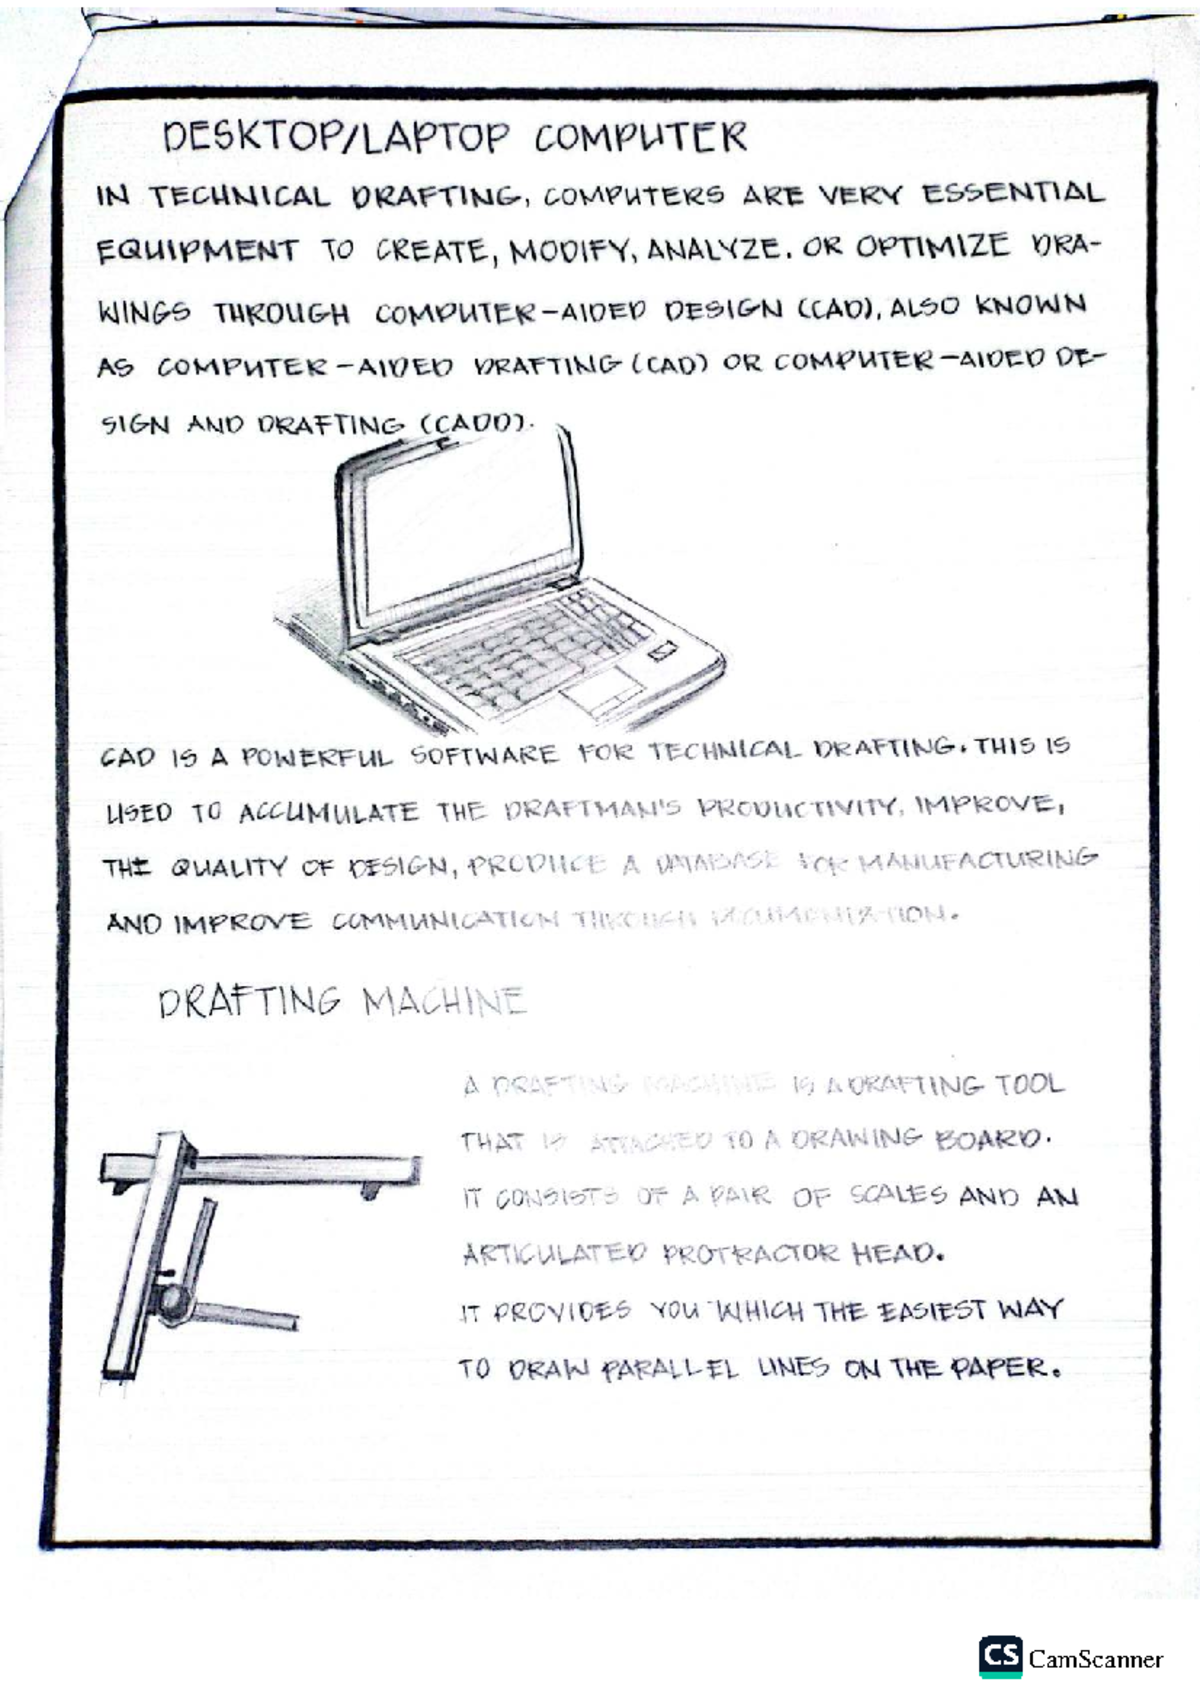 DESKTOP/LAPTOP COMPUTER
IN TECHNICAL DRAFTING, COMPUTERS ARE VERY ESSENTIAL
EQUIPMENT TO CREATE, MODIFY, ANALYZE. OR OPTIMIZE DRA-
WINGS THROUGH COMPUTER-AIDED DESIGN (CAD), ALSO KNOWN
AS COMPUTER-AIDED DRAFTING (CAD) OR COMPUTER-AIDED DE-
SIGN AND DRAFTING (CADD).
CAD IS A POWERFUL SOFTWARE FOR TECHNICAL DRAFTING. THIS IS
USED TO ACCUMULATE THE DRAFTMAN'S PRODUCTIVITY, IMPROVE,
THE QUALITY OF DESIGN, PRODUCE A DATABASE FOR MANUFACTURING
AND IMPROVE COMMUNICATION THROUGH
DRAFTING MACHINE
A DRAFTING MACHINE IS A DRAFTING TOOL
THAT IS ATTACHED TO A DRAWING BOARD.
IT CONSISTS OF A PAIR OF SCALES AND AN
ARTICULATED PROTRACTOR HEAD.
IT PROVIDES YOU WHICH THE EASIEST WAY
TO DRAW PARALLEL LINES ON THE PAPER.
CS CamScanner